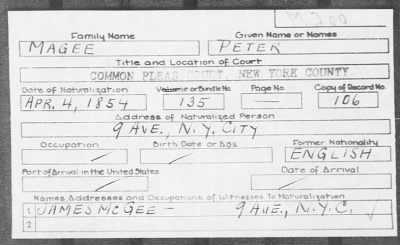 M 200
Family Name Given Name or Names
MAGEE PETER
Title and Location of Court
COMMON PLEAS COURT, NEW YORK COUNTY
Date of Naturalization Volume or Bundle No. Page No. Copy of Record No.
APR. 4, 1854 135 — 106
Address of Naturalized Person
9 AVE., N.Y. CITY
Occupation Birth Date or Age Former Nationality
ENGLISH
Port of Arrival in the United States Date of Arrival
Names, Addresses and Occupations of Witnesses To Naturalization
1 JAMES MCGEE — 9 AVE., N.Y.C.
2